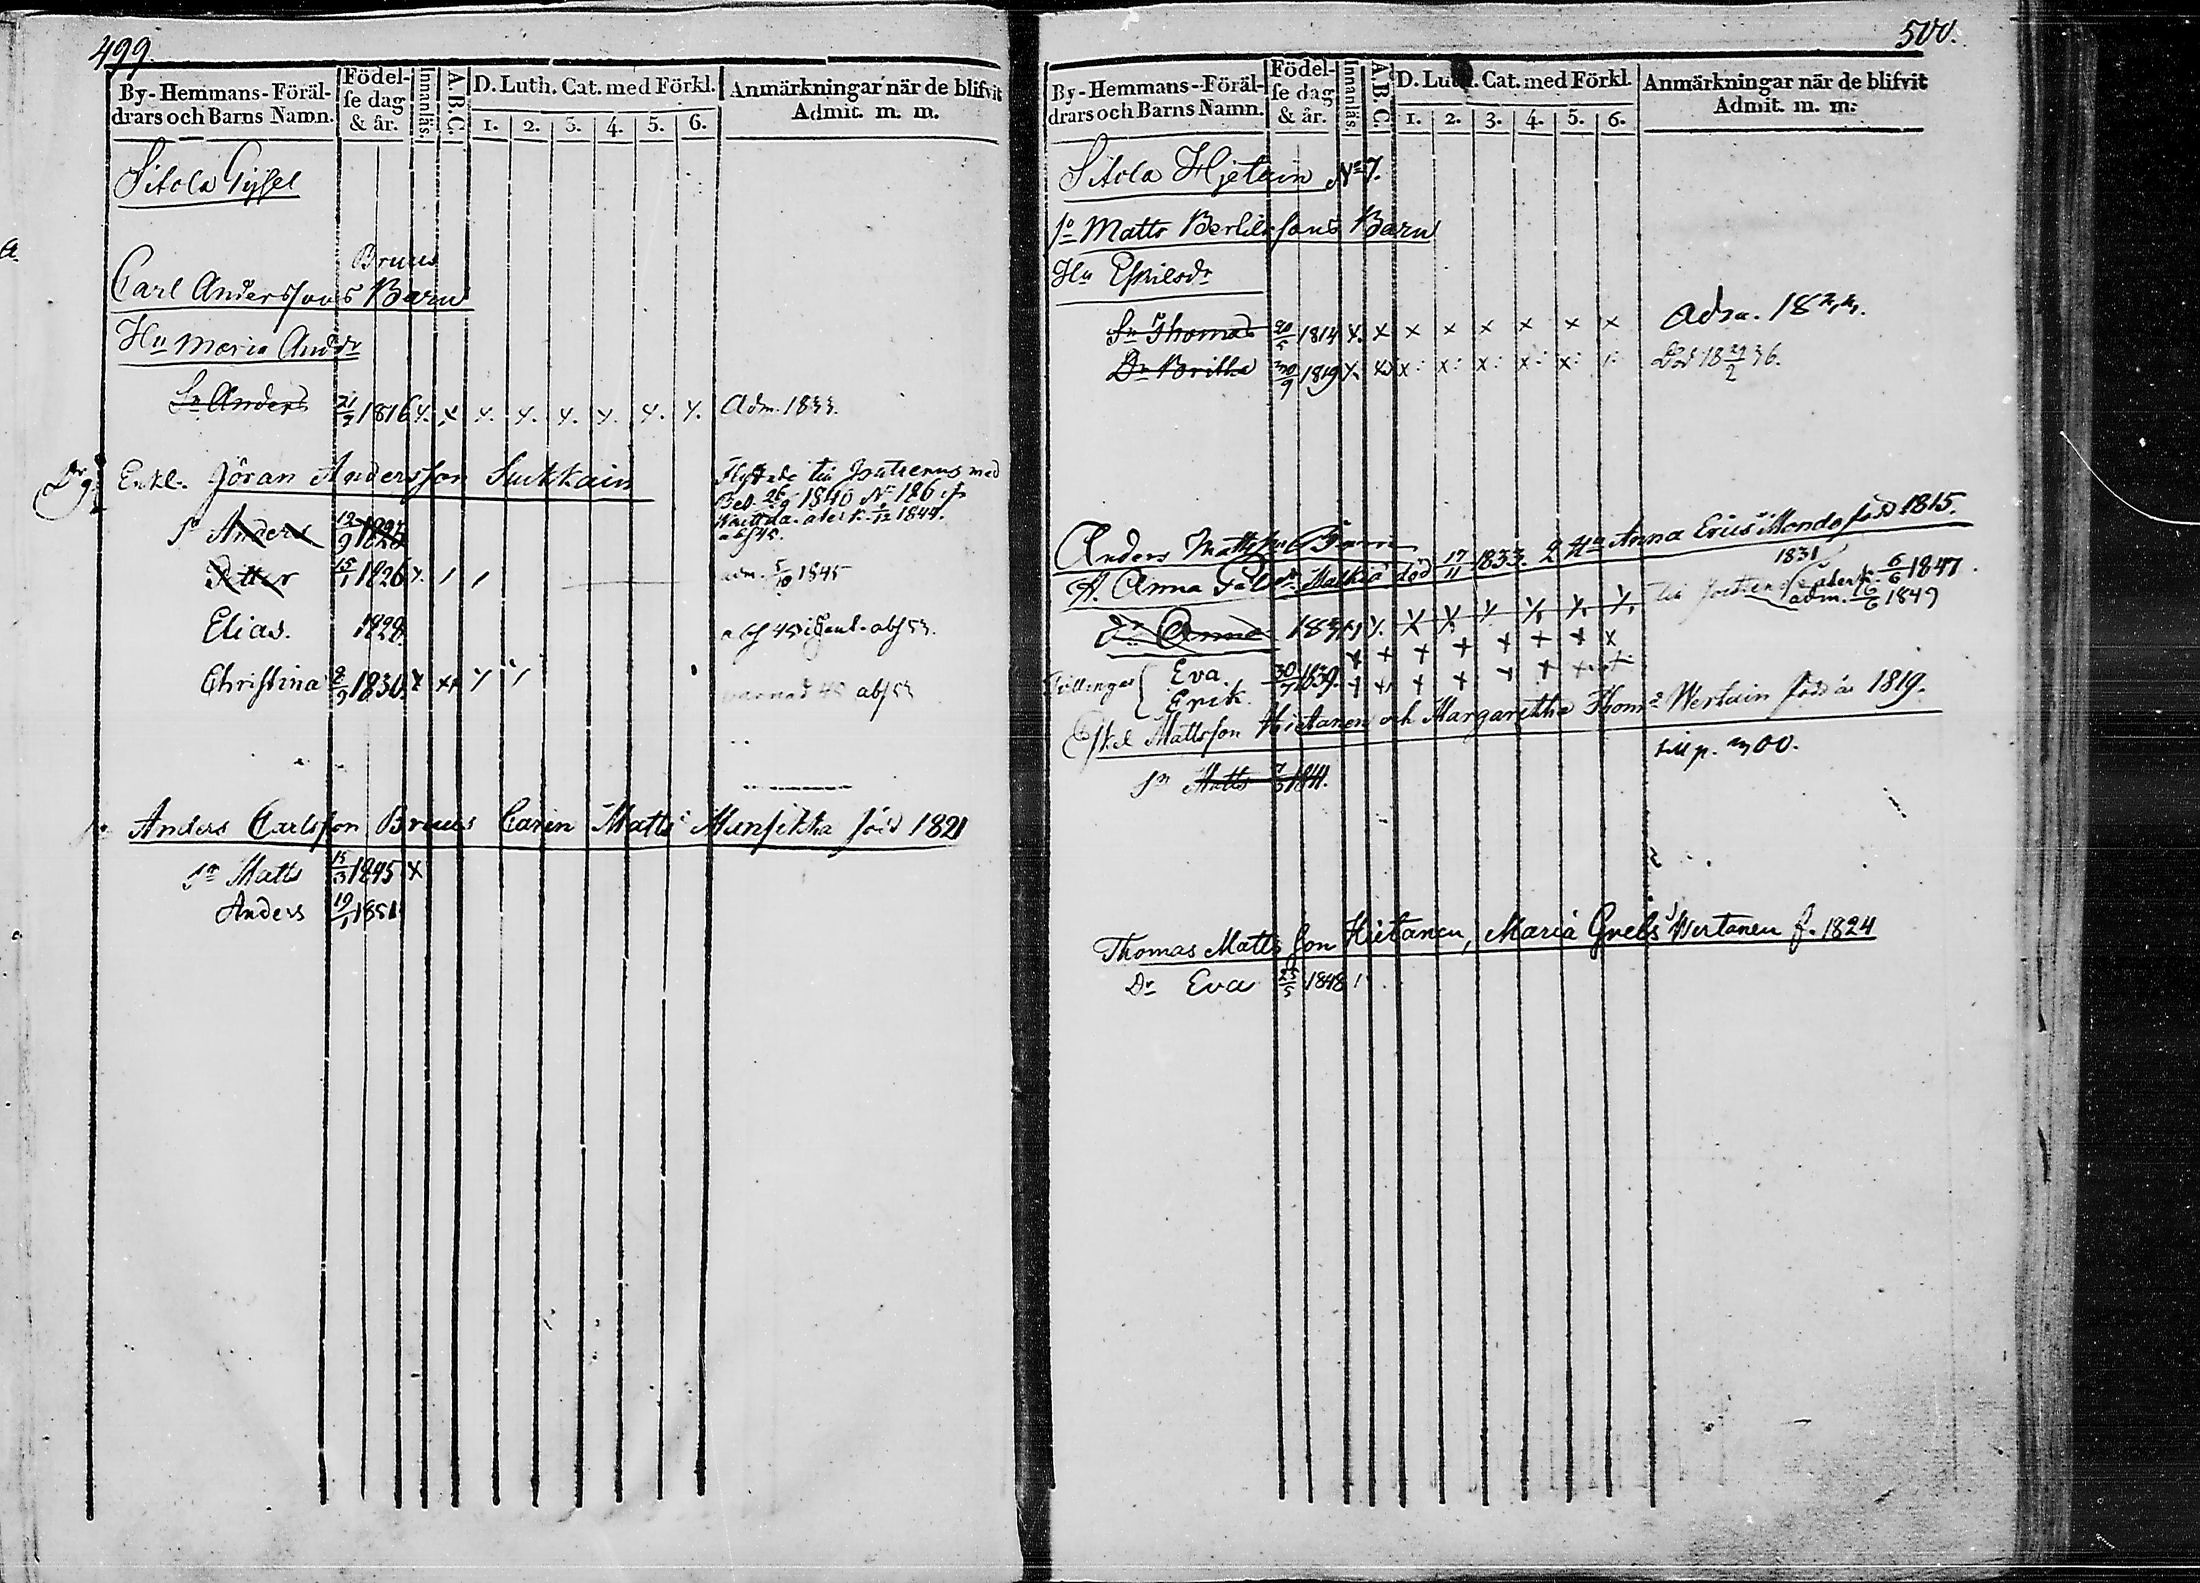 499.
By-Hemmans-Föräl-
drars och Barns Namn.
Födel-
se dag
& år.
Innanläs.
A.B.C.
D. Luth. Cat. med Förkl.
1. 2. 3. 4. 5. 6.
Anmärkningar när de blifvit
Admit. m. m.
Sitola
Bruus
Carl Anderssons Barn
Hu Maria Andsdr
Sn Anders 21/3 1816 x. x x. x. x. x. x. x. Adm. 1833.
Enkl. Jöran Andersson Suckkain Flyttade till med
Bet. 26/9 1840 No 126
Sn Anders 12/9 1825 åter fr. 1/12 1844.
abs 45.
Petter 15/1 1826 x. / / adm. 5/10 1845
Elias. 1828 abs 45 abs 53.
Christina 8/9 1830. x xx 45 abs 53
Anders Carlsson Bruus Carin Matts Munsikka född 1821
Sn Matts 15/3 1845 x
Anders 19/1 1851
500.
By-Hemmans-Föräl-
drars och Barns Namn.
Födel-
se dag
& år.
Innanläs.
A.B.C.
D. Luth. Cat. med Förkl.
1. 2. 3. 4. 5. 6.
Anmärkningar när de blifvit
Admit. m. m.
Sitola Hjetain No 7.
So Matts Bertilssons Barn
Hu Eskilsdr
Sn Thomas 20/5 1814 x. x x x x x x x Adm. 18
Dr Britha 30/9 1819 x. x. x: x: x: x: x: Död 18 29/2 36.
Anders Mattsson Barn
H. Anna död 17/11 1833. 2 Hu Anna Erics Mondo född 1815.
Dr Anna 1831 till åter fr. 6/6 1847.
adm. 16/6 1849
Tvillingar Eva. 30/7 1839. x x x x x x x
Erik. x x x x x x
Eskel Mattsson Hietanen och Margaretha Thoms Wertain född år 1819.
Sn Matts 1841. till p. 300.
Thomas Mattsson Hietanen, Maria Grels Wertanen f. 1824
Dr Eva 25/5 1848 /